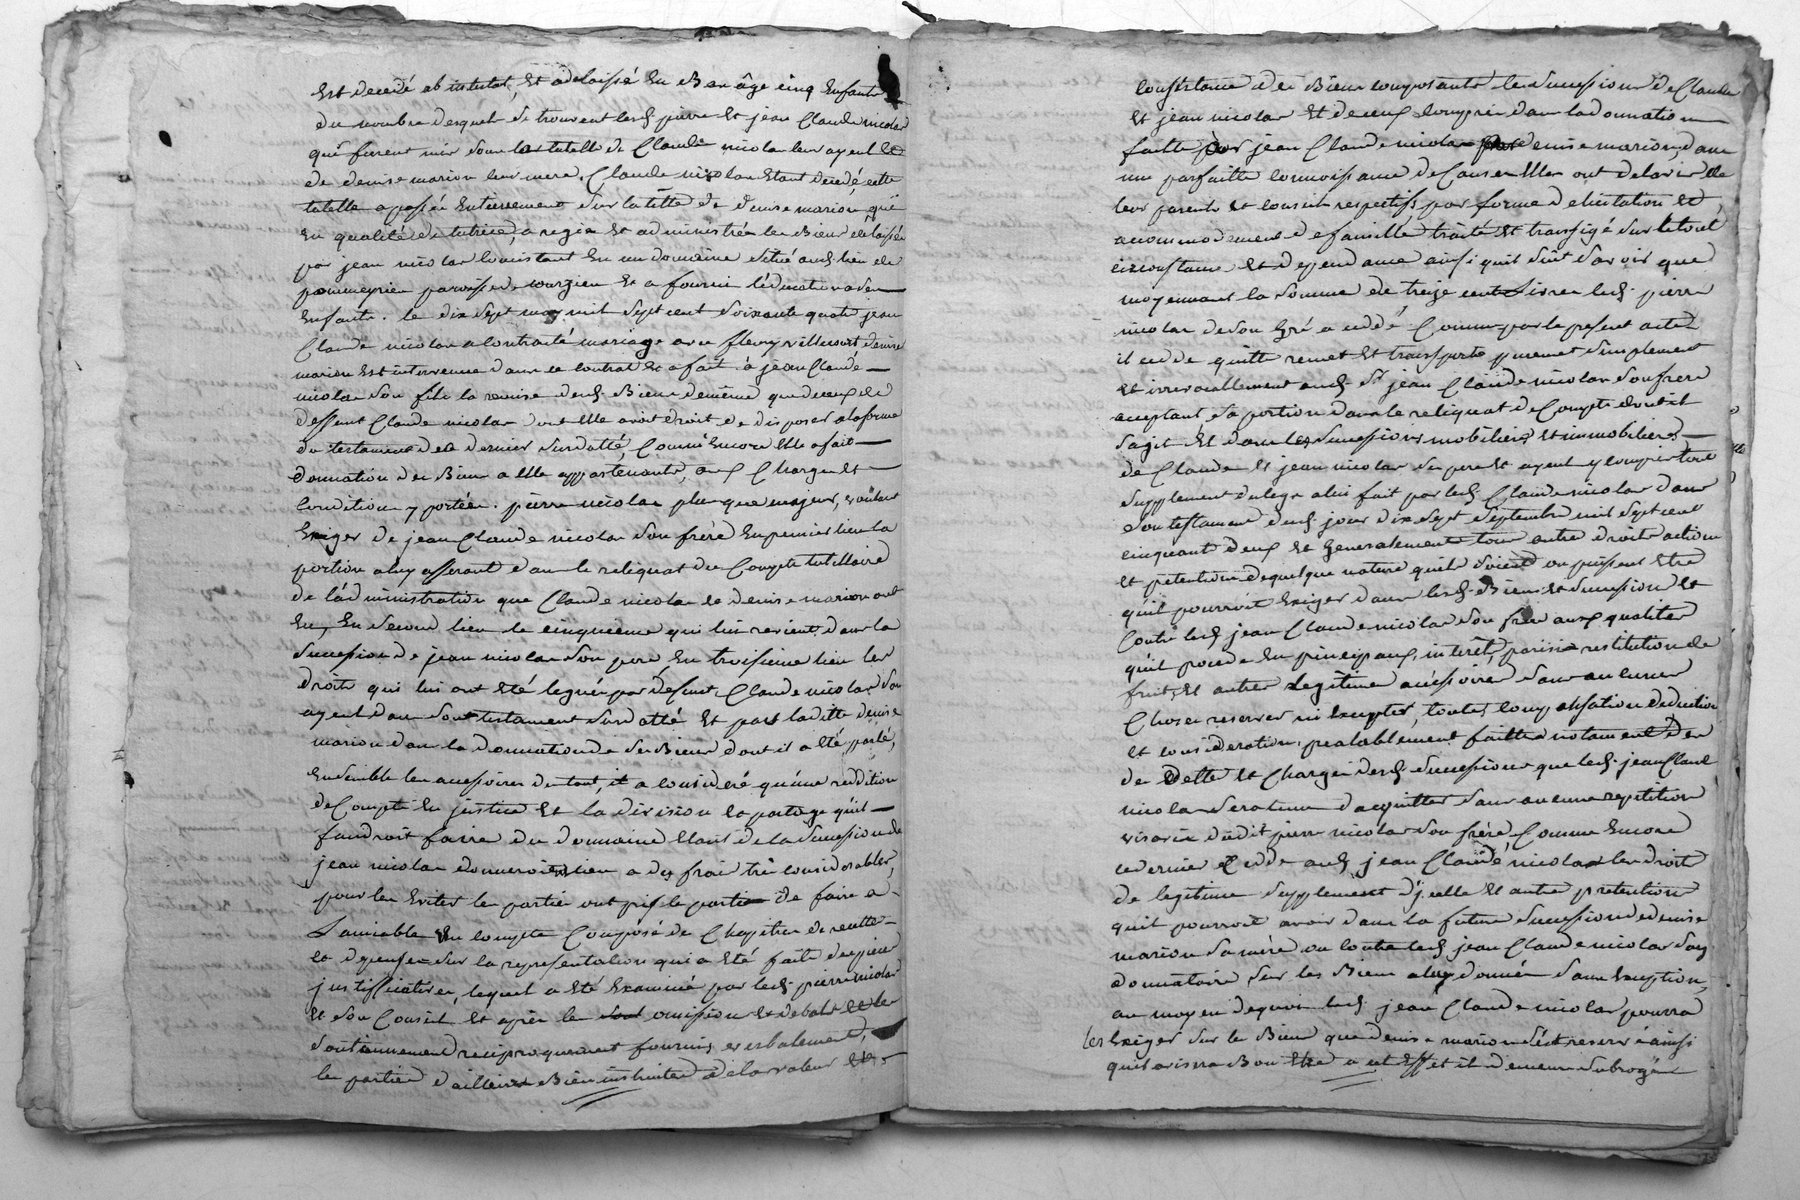 Est decedé ab intestat, Et adelaissé En Bas âge cinq Enfants
du nombre desquels se trouvent lesd. pierre Et jean Claude nicolas
qui furent mis sous la tutelle de Claude nicolas leur ayeul Et
de denise marion leur mere. Claude nicolas Etant decedé cette
tutelle a passée Entierement sur la tétte de denise marion qui
En qualité de tutrice, a regie Et administrée les Biens delaissés
par jean nicolas Consistant En un domaine situé aud. lieu de
pommeyrieu paroisse de Et a fourni l'éducation a ses
Enfants. le dix sept may mil sept cent soixante quatre jean
Claude nicolas a Contracté mariage avec fleury denise
marion Est intervenue dans ce contrat Et a fait à jean Claude
nicolas son fils la remise desd. Biens de même que de ceux de
deffunt Claude nicolas dont Elle avoit droit de disposer a la forme
du testament de ce dernier susdatté, Comme Encore Elle a fait
donnation des Biens a Elle appartenants, aux Charges Et
Conditions y portées. pierre nicolas plus que majeur, voulant
Exiger de jean Claude nicolas son frère En premier lieu la
portion a luy afferant dans le reliquat du Compte tutellaire
de l'administration que Claude nicolas Et denise marion ont
Eu, En second lieu le cinquieme qui lui revient dans la
succession de jean nicolas son pere En troisieme lieu les
droits qui lui ont Eté legués par deffunt Claude nicolas son
ayeul dans son testament susdatté Et par laditte denise
marion dans la donnation de ses Biens dont il a Eté parlé,
Ensemble les accessoires du tout, il a consideré qu'une reddition
de Compte En justice Et la division Et partage qu'il
faudroit faire du domaine Etant de la succession de
jean nicolas donneroient lieu a des frais très considerables,
pour les Eviter les parties ont pris le parti de faire a
L'amiable un compte Composé de Chapitres de recette
Et depense sur la representation qui a Eté faite des pieces
justifficatives, lequel a Eté Examiné par lesd. pierre nicolas
Et son Conseil Et après les omissions Et debats Et les
soutiennement reciproquement fournis verbalement,
les parties d'ailleurs Bien instruites de la valeur Et
Consistance des Biens composants les successions de Claude
Et jean nicolas Et de ceux compris dans la donnation
faitte par jean Claude nicolas denise marion, dans
une parfaitte connoissance de Cause Elles ont de l'avis de
leur parents Et conseils respectifs par forme de licitation Et
accommodement de famille traité Et transigé sur le tout
circonstance Et dependance ainsi qu'il suit savoir que
moyennant la somme de treize cent Livres led. pierre
nicolas de son gré a cédé Comme par le present acte
il cede quitte remet Et transporte purement simplement
Et irrevocablement aud. Sr jean Claude nicolas son frere
acceptant sa portion dans le reliquat de Compte dont il
s'agit Et dans les successions mobiliere Et immobiliere
de Claude Et jean nicolas ses pere Et ayeul y compris tout
supplement du legs a lui fait par led. Claude nicolas dans
son testament dud. jour dix sept septembre mil sept cent
cinquant deux Et Generalement tous autre droits action
Et pretention de quelque nature qu'ils soient ou puissent Etre
qu'il pourroit Exiger dans lesd. Biens Et succession Et
Contre led. jean Claude nicolas son frere aux qualités
qu'il procede En principaux, interêts, parisis restitution de
fruits, Et autres Legitimes accessoires sans aucunes
Choses reserver ni Excepter, toutes compensation deduction
Et consideration, prealablement faittes notament des
de Dette Et Charges desd. successions que led. jean Claude
nicolas sera tenu d'acquitter sans aucune repetition
vis a vis dudit pierre nicolas son frère Comme Encore
ce dernier Cede aud. jean Claude nicolas les droits
de legitime supplement d'jcelle Et autre pretention
qu'il pourroit avoir dans la future succession de denise
marion sa mère ou contre led. jean Claude nicolas son
donnataire sur les Biens a luy donnés sans Exception,
au moyen de quoi led. jean Claude nicolas pourra
les Exiger sur le Bien que denise marion s'est reservé ainsi
qu'il avisera Bon Etre a cet Effet il demeure subrogé